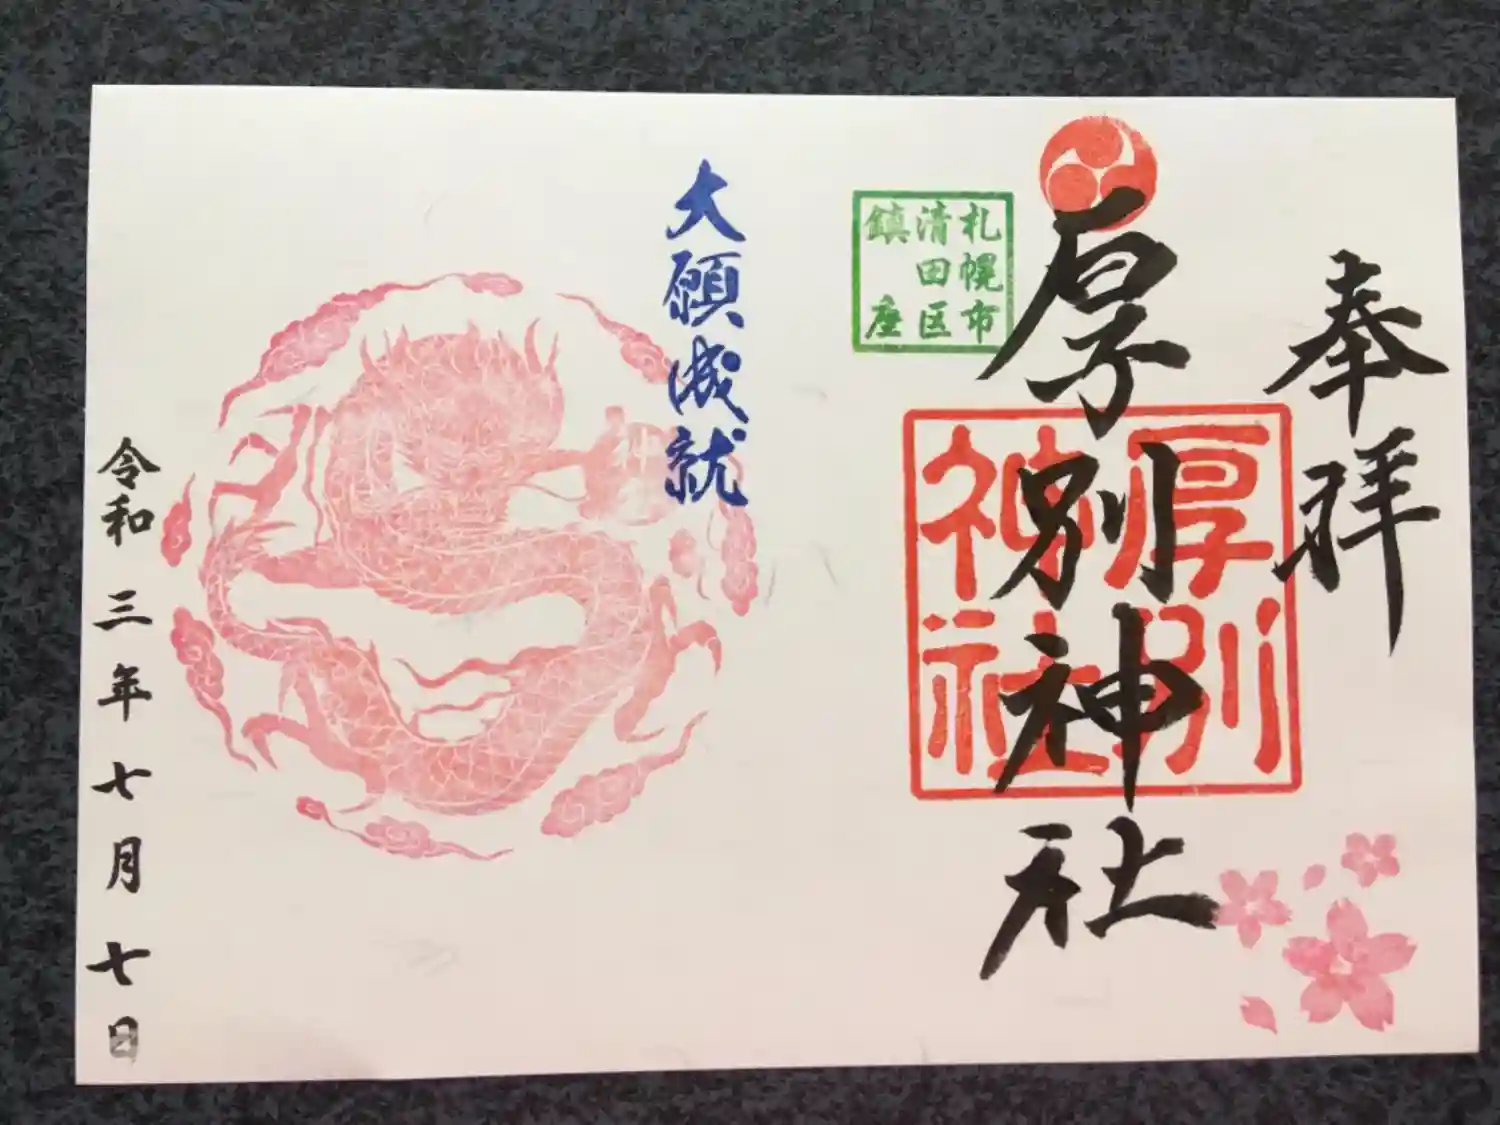 奉拝
厚別神社
厚別
神社
札幌市
清田区
鎮座
大願成就
神
令和三年七月七日